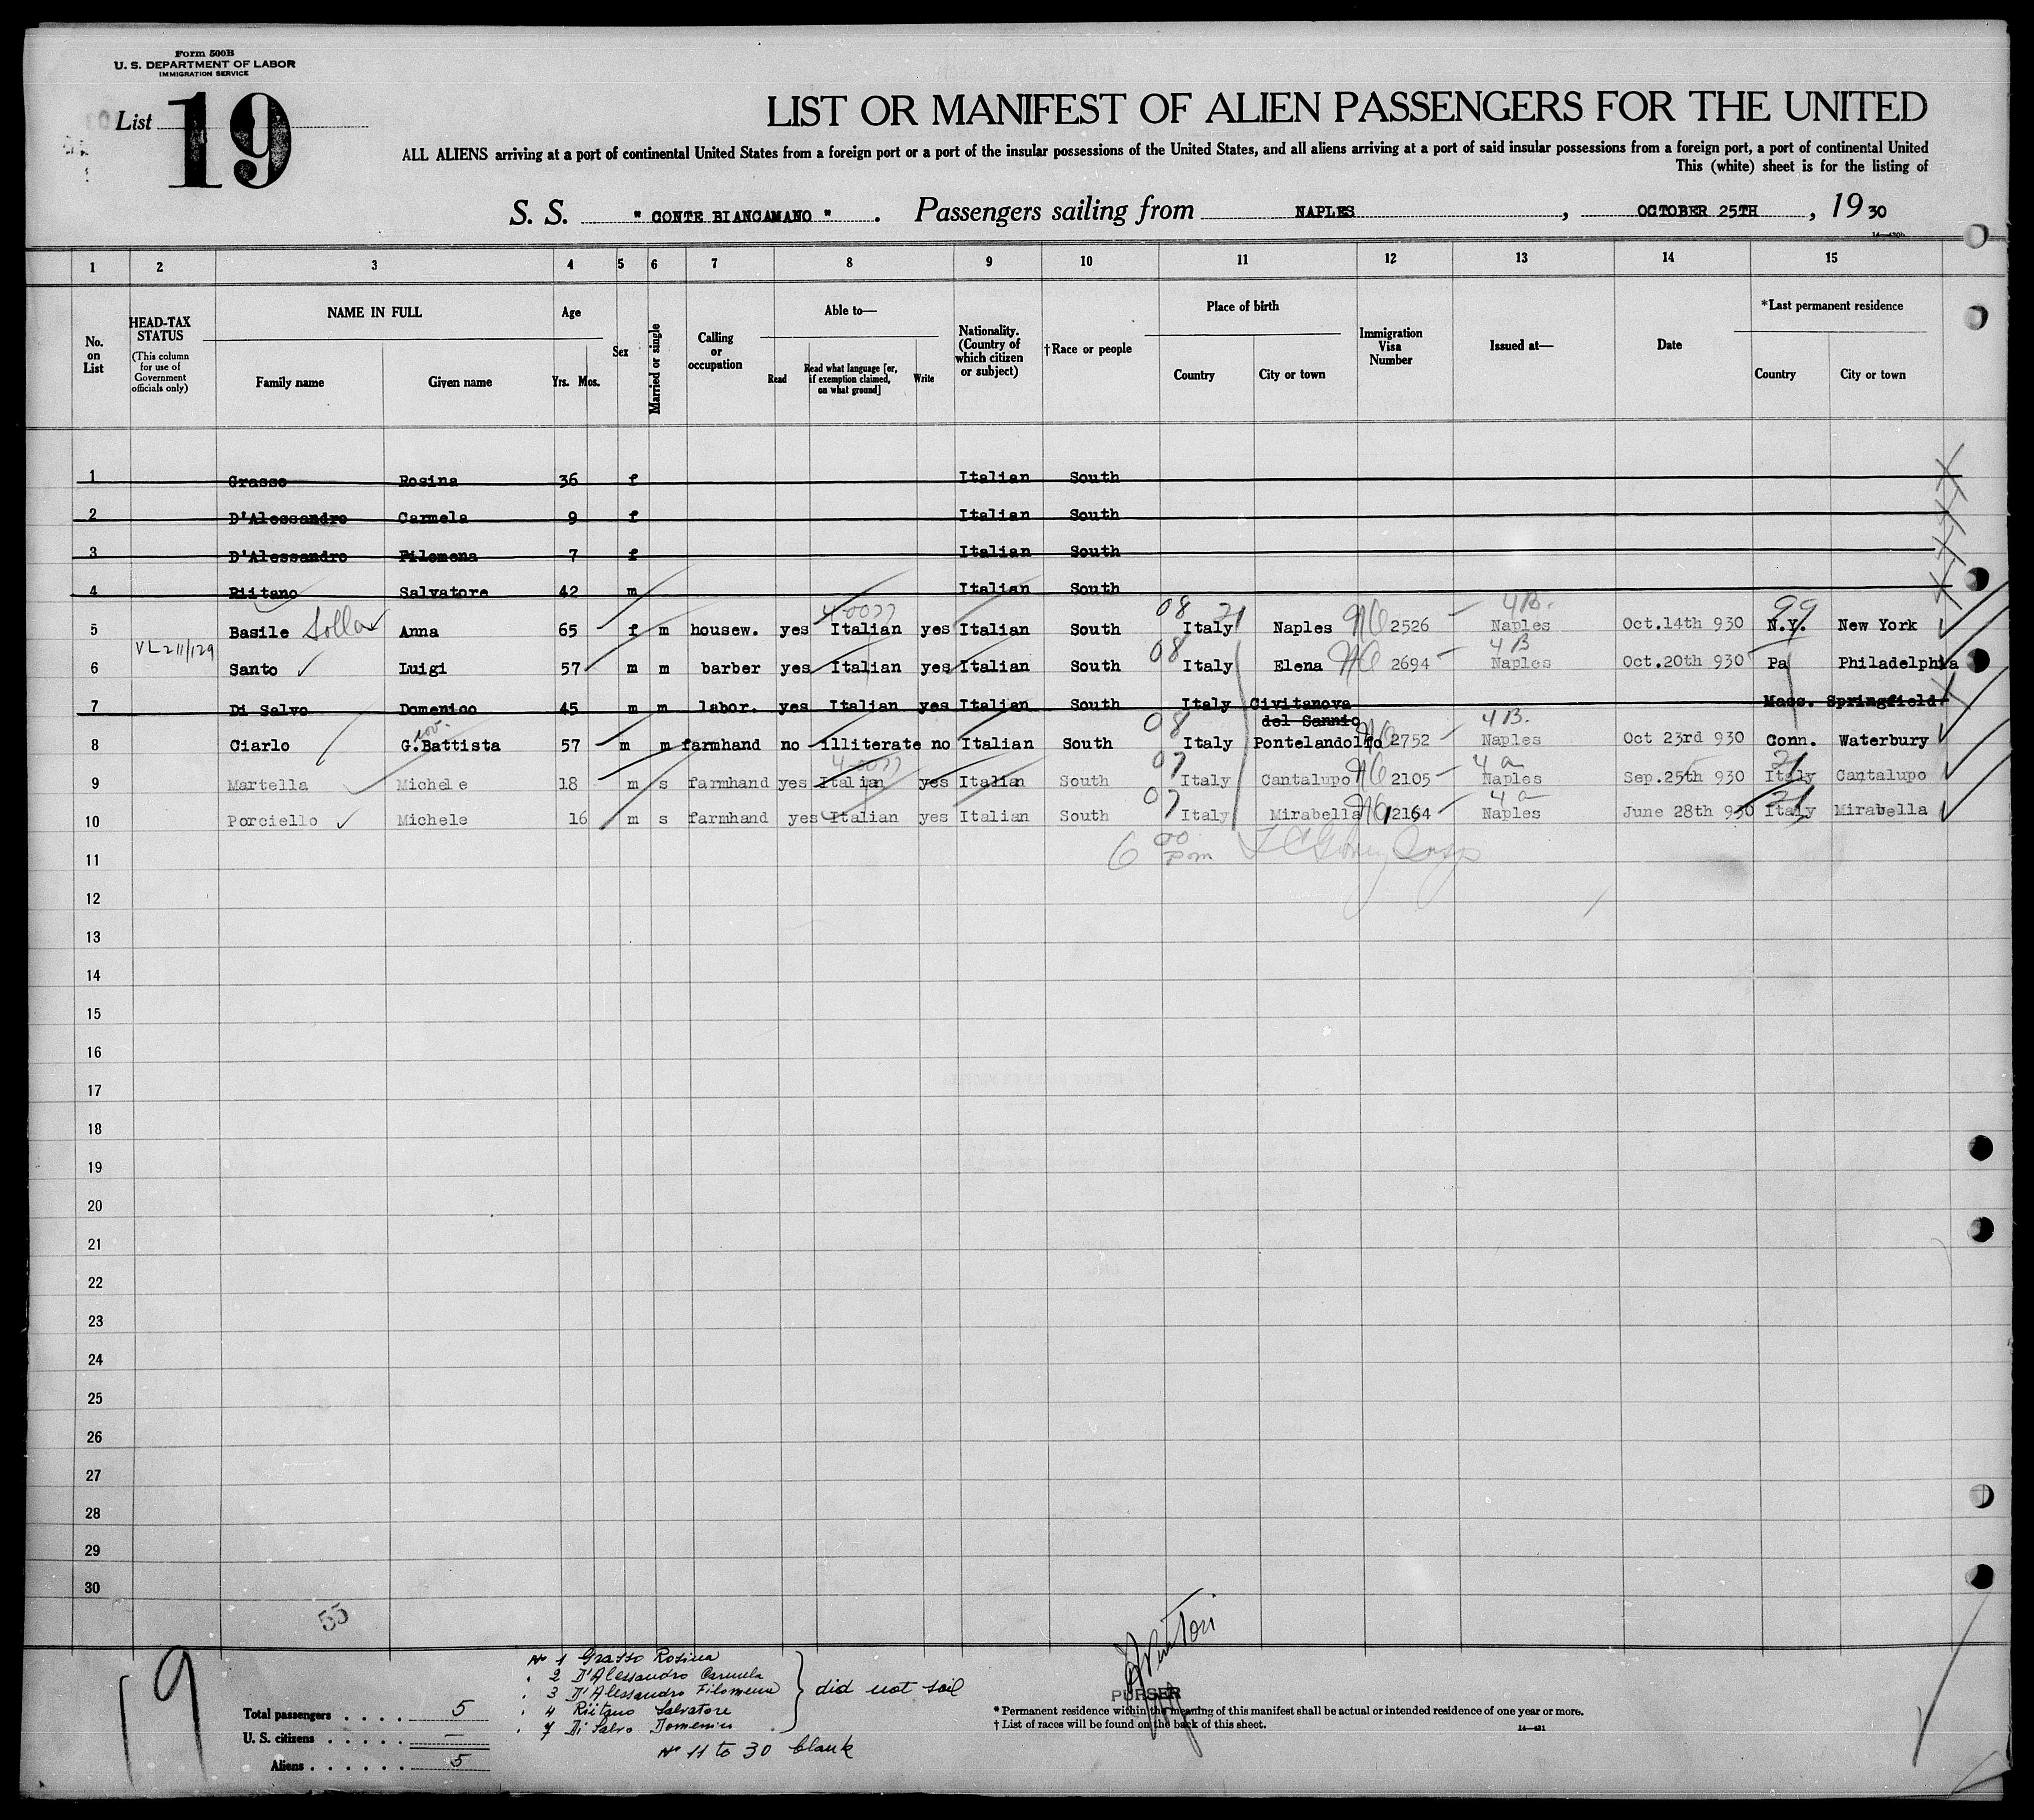 Form 500B
U. S. DEPARTMENT OF LABOR
IMMIGRATION SERVICE
List 19
LIST OR MANIFEST OF ALIEN PASSENGERS FOR THE UNITED
ALL ALIENS arriving at a port of continental United States from a foreign port or a port of the insular possessions of the United States, and all aliens arriving at a port of said insular possessions from a foreign port, a port of continental United
This (white) sheet is for the listing of
S. S. " CONTE BIANCAMANO " . Passengers sailing from NAPLES , OCTOBER 25TH , 19 30
1 2 3 4 5 6 7 8 9 10 11 12 13 14 15
No. on List
HEAD-TAX STATUS (This column for use of Government officials only)
NAME IN FULL Family name Given name
Age Yrs. Mos.
Sex
Married or single
Calling or occupation
Able to— Read Read what language [or, if exemption claimed, on what ground] Write
Nationality. (Country of which citizen or subject)
†Race or people
Place of birth Country City or town
Immigration Visa Number
Issued at—
Date
*Last permanent residence Country City or town
1 Grasso Rosina 36 f Italian South
2 D'Alessandro Carmela 9 f Italian South
3 D'Alessandro Filomena 7 f Italian South
4 Riitano Salvatore 42 m Italian South
4-0077 08 21 4B. 99
5 Basile Solla Anna 65 f m housew. yes Italian yes Italian South Italy Naples 2526 Naples Oct.14th 930 N.Y. New York
VL211/129 08 4B
6 Santo Luigi 57 m m barber yes Italian yes Italian South Italy Elena 2694 Naples Oct.20th 930 Pa Philadelphia
7 Di Salvo Domenico 45 m m labor. yes Italian yes Italian South Italy Civitanova del Sannio Mass. Springfield
08 4B.
8 Ciarlo G.Battista 57 m m farmhand no illiterate no Italian South Italy Pontelandolfo 2752 Naples Oct 23rd 930 Conn. Waterbury
4-0077 07 4a 21
9 Martella Michele 18 m s farmhand yes Italian yes Italian South Italy Cantalupo 2105 Naples Sep.25th 930 Italy Cantalupo
07 4a 21
10 Porciello Michele 16 m s farmhand yes Italian yes Italian South Italy Mirabella 2164 Naples June 28th 930 Italy Mirabella
6 00 pm
11
12
13
14
15
16
17
18
19
20
21
22
23
24
25
26
27
28
29
30
55
19
No 1 Grasso Rosina
" 2 D'Alessandro Carmela
" 3 D'Alessandro Filomena
" 4 Riitano Salvatore
" 7 Di Salvo Domenico
did not sail
No 11 to 30 blank
Total passengers . . . . 5
U. S. citizens . . . . . —
Aliens . . . . . . 5
PURSER
* Permanent residence within the meaning of this manifest shall be actual or intended residence of one year or more.
† List of races will be found on the back of this sheet.
14—431